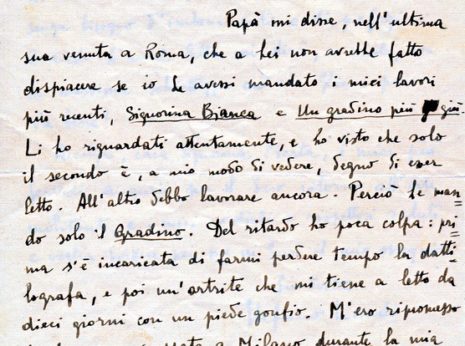 Papà mi disse, nell'ultima
sua venuta a Roma, che a Lei non avrebbe fatto
dispiacere se io Le avessi mandato i miei lavori
più recenti, Signorina Bianca e Un gradino più giù.
Li ho riguardati attentamente, e ho visto che solo
il secondo è, a mio modo di vedere, degno di esser
letto. All'altro debbo lavorare ancora. Perciò Le man=
do solo il Gradino. Del ritardo ho poca colpa: pri=
ma s'è incaricata di farmi perdere tempo la datti=
lografa, e poi un'artrite che mi tiene a letto da
dieci giorni con un piede gonfio. M'ero ripromesso
a Milano durante la mia